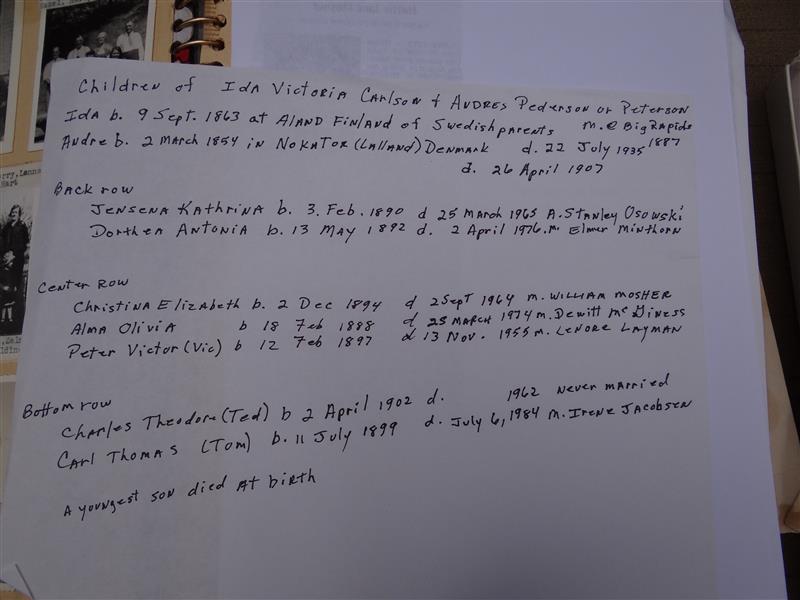 Children of Ida Victoria Carlson + Andres Pederson or Peterson
Ida b. 9 Sept. 1863 at Aland Finland of Swedish parents m. @ Big Rapids 1887
Andre b. 2 March 1854 in Nokator (Lalland) Denmark d. 22 July 1935
d. 26 April 1907
Back row
Jensena Kathrina b. 3. Feb. 1890 d 25 March 1965 A. Stanley Osowski
Dorthea Antonia b. 13 May 1892 d. 2 April 1976. m. Elmer Minthorn
Center Row
Christina Elizabeth b. 2 Dec 1894 d 2 Sept 1964 m. William Mosher
Alma Olivia b 18 Feb 1888 d 25 March 1974 m. Dewitt McGiness
Peter Victor (Vic) b 12 Feb 1897 d 13 Nov. 1955 m. Lenore Layman
Bottom row
Charles Theodore (Ted) b 2 April 1902 d. 1962 never married
Carl Thomas (Tom) b. 11 July 1899 d. July 6, 1984 m. Irene Jacobsen
A youngest son died at birth
Hart